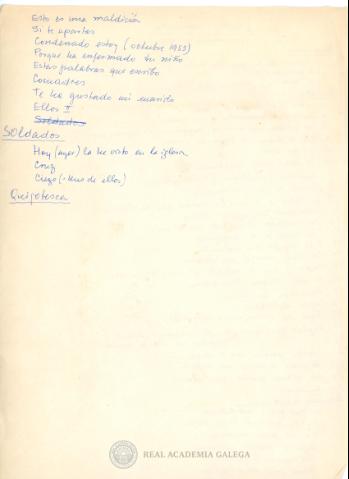 Esto es una maldición
Si te apartas
Condenado estoy (octubre 1953)
Porque ha enfermado tu niño
Estas palabras que escribo
Comadres
Te ha gustado mi marido
Ellos II
Soldados
Soldados
Hoy (ayer) la he visto en la iglesia
Cruz
Ciego (de ellos)
Quijotesca
REAL ACADEMIA GALEGA